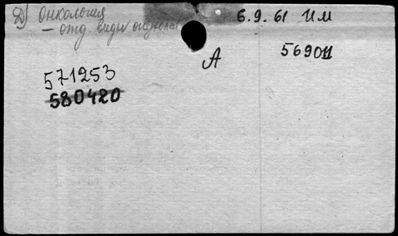 Д) Онкология 6.9.61 ИМ
— отд. виды опухолей
А 56901
571253
580420